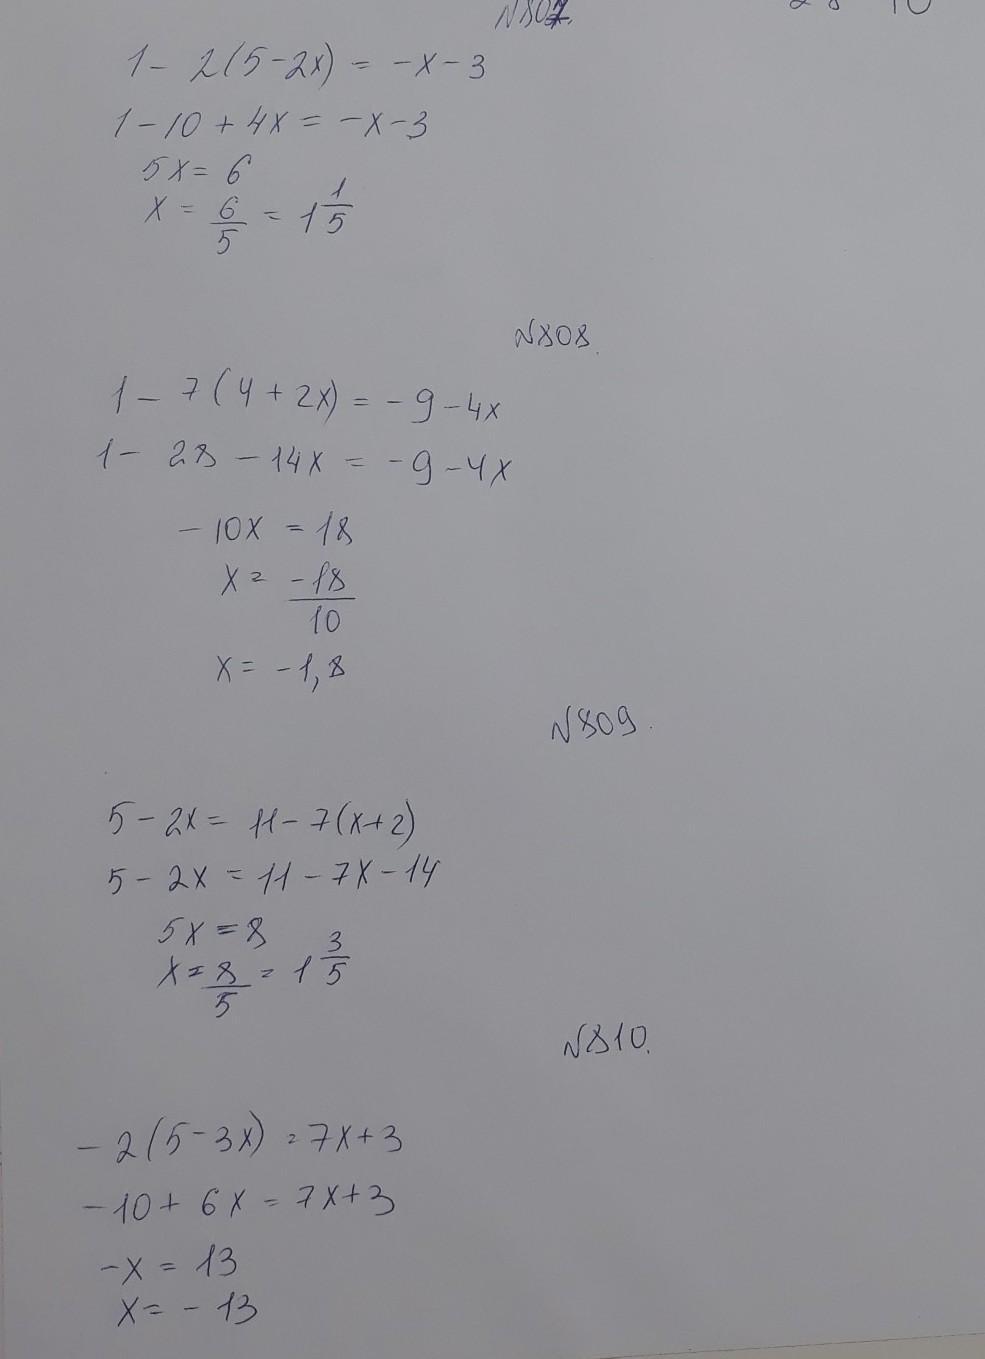 N807.
1 - 2(5-2x) = -x-3
1-10+4x = -x-3
5x = 6
x = 6/5 = 1 1/5
N808.
1 - 7(4+2x) = -9-4x
1 - 28 - 14x = -9-4x
-10x = 18
x = -18/10
x = -1,8
N809.
5-2x = 11-7(x+2)
5-2x = 11-7x-14
5x = 8
x = 8/5 = 1 3/5
N810.
-2(5-3x) = 7x+3
-10+6x = 7x+3
-x = 13
x = -13